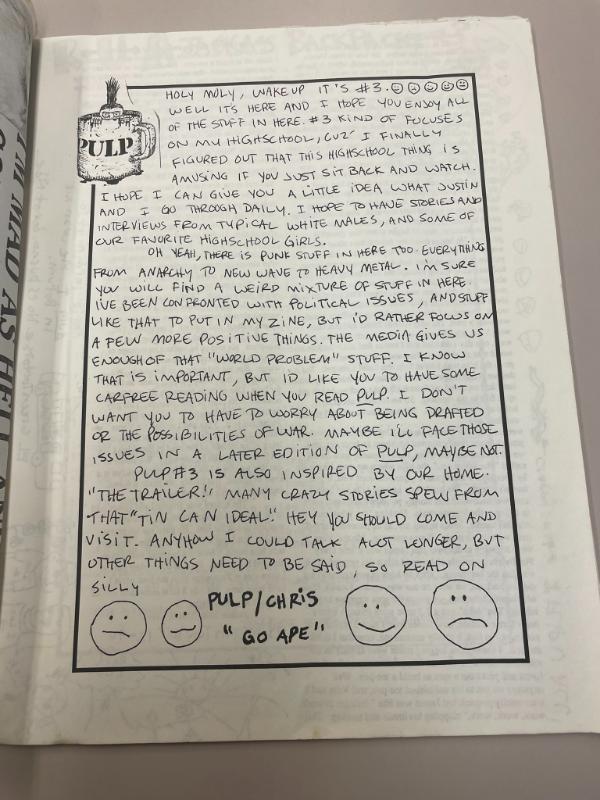 HOLY MOLY, WAKE UP IT'S #3.
WELL IT'S HERE AND I HOPE YOU ENJOY ALL
OF THE STUFF IN HERE. #3 KIND OF FOCUSES
ON MY HIGHSCHOOL, CUZ' I FINALLY
FIGURED OUT THAT THIS HIGHSCHOOL THING IS
AMUSING IF YOU JUST SIT BACK AND WATCH.
I HOPE I CAN GIVE YOU A LITTLE IDEA WHAT JUSTIN
AND I GO THROUGH DAILY. I HOPE TO HAVE STORIES AND
INTERVIEWS FROM TYPICAL WHITE MALES, AND SOME OF
OUR FAVORITE HIGHSCHOOL GIRLS.
OH YEAH, THERE IS PUNK STUFF IN HERE TOO. EVERYTHING
FROM ANARCHY TO NEW WAVE TO HEAVY METAL. I'M SURE
YOU WILL FIND A WEIRD MIXTURE OF STUFF IN HERE.
I'VE BEEN CONFRONTED WITH POLITICAL ISSUES, AND STUFF
LIKE THAT TO PUT IN MY ZINE, BUT I'D RATHER FOCUS ON
A FEW MORE POSITIVE THINGS. THE MEDIA GIVES US
ENOUGH OF THAT "WORLD PROBLEM" STUFF. I KNOW
THAT IS IMPORTANT, BUT I'D LIKE YOU TO HAVE SOME
CARFREE READING WHEN YOU READ PULP. I DON'T
WANT YOU TO HAVE TO WORRY ABOUT BEING DRAFTED
OR THE POSSIBILITIES OF WAR. MAYBE I'LL FACE THOSE
ISSUES IN A LATER EDITION OF PULP, MAYBE NOT.
PULP #3 IS ALSO INSPIRED BY OUR HOME.
"THE TRAILER!" MANY CRAZY STORIES SPEW FROM
THAT "TIN CAN IDEAL." HEY YOU SHOULD COME AND
VISIT. ANYHOW I COULD TALK ALOT LONGER, BUT
OTHER THINGS NEED TO BE SAID, SO READ ON
SILLY
PULP/CHRIS
"GO APE"
PULP
I'M MAD AS HELL AND